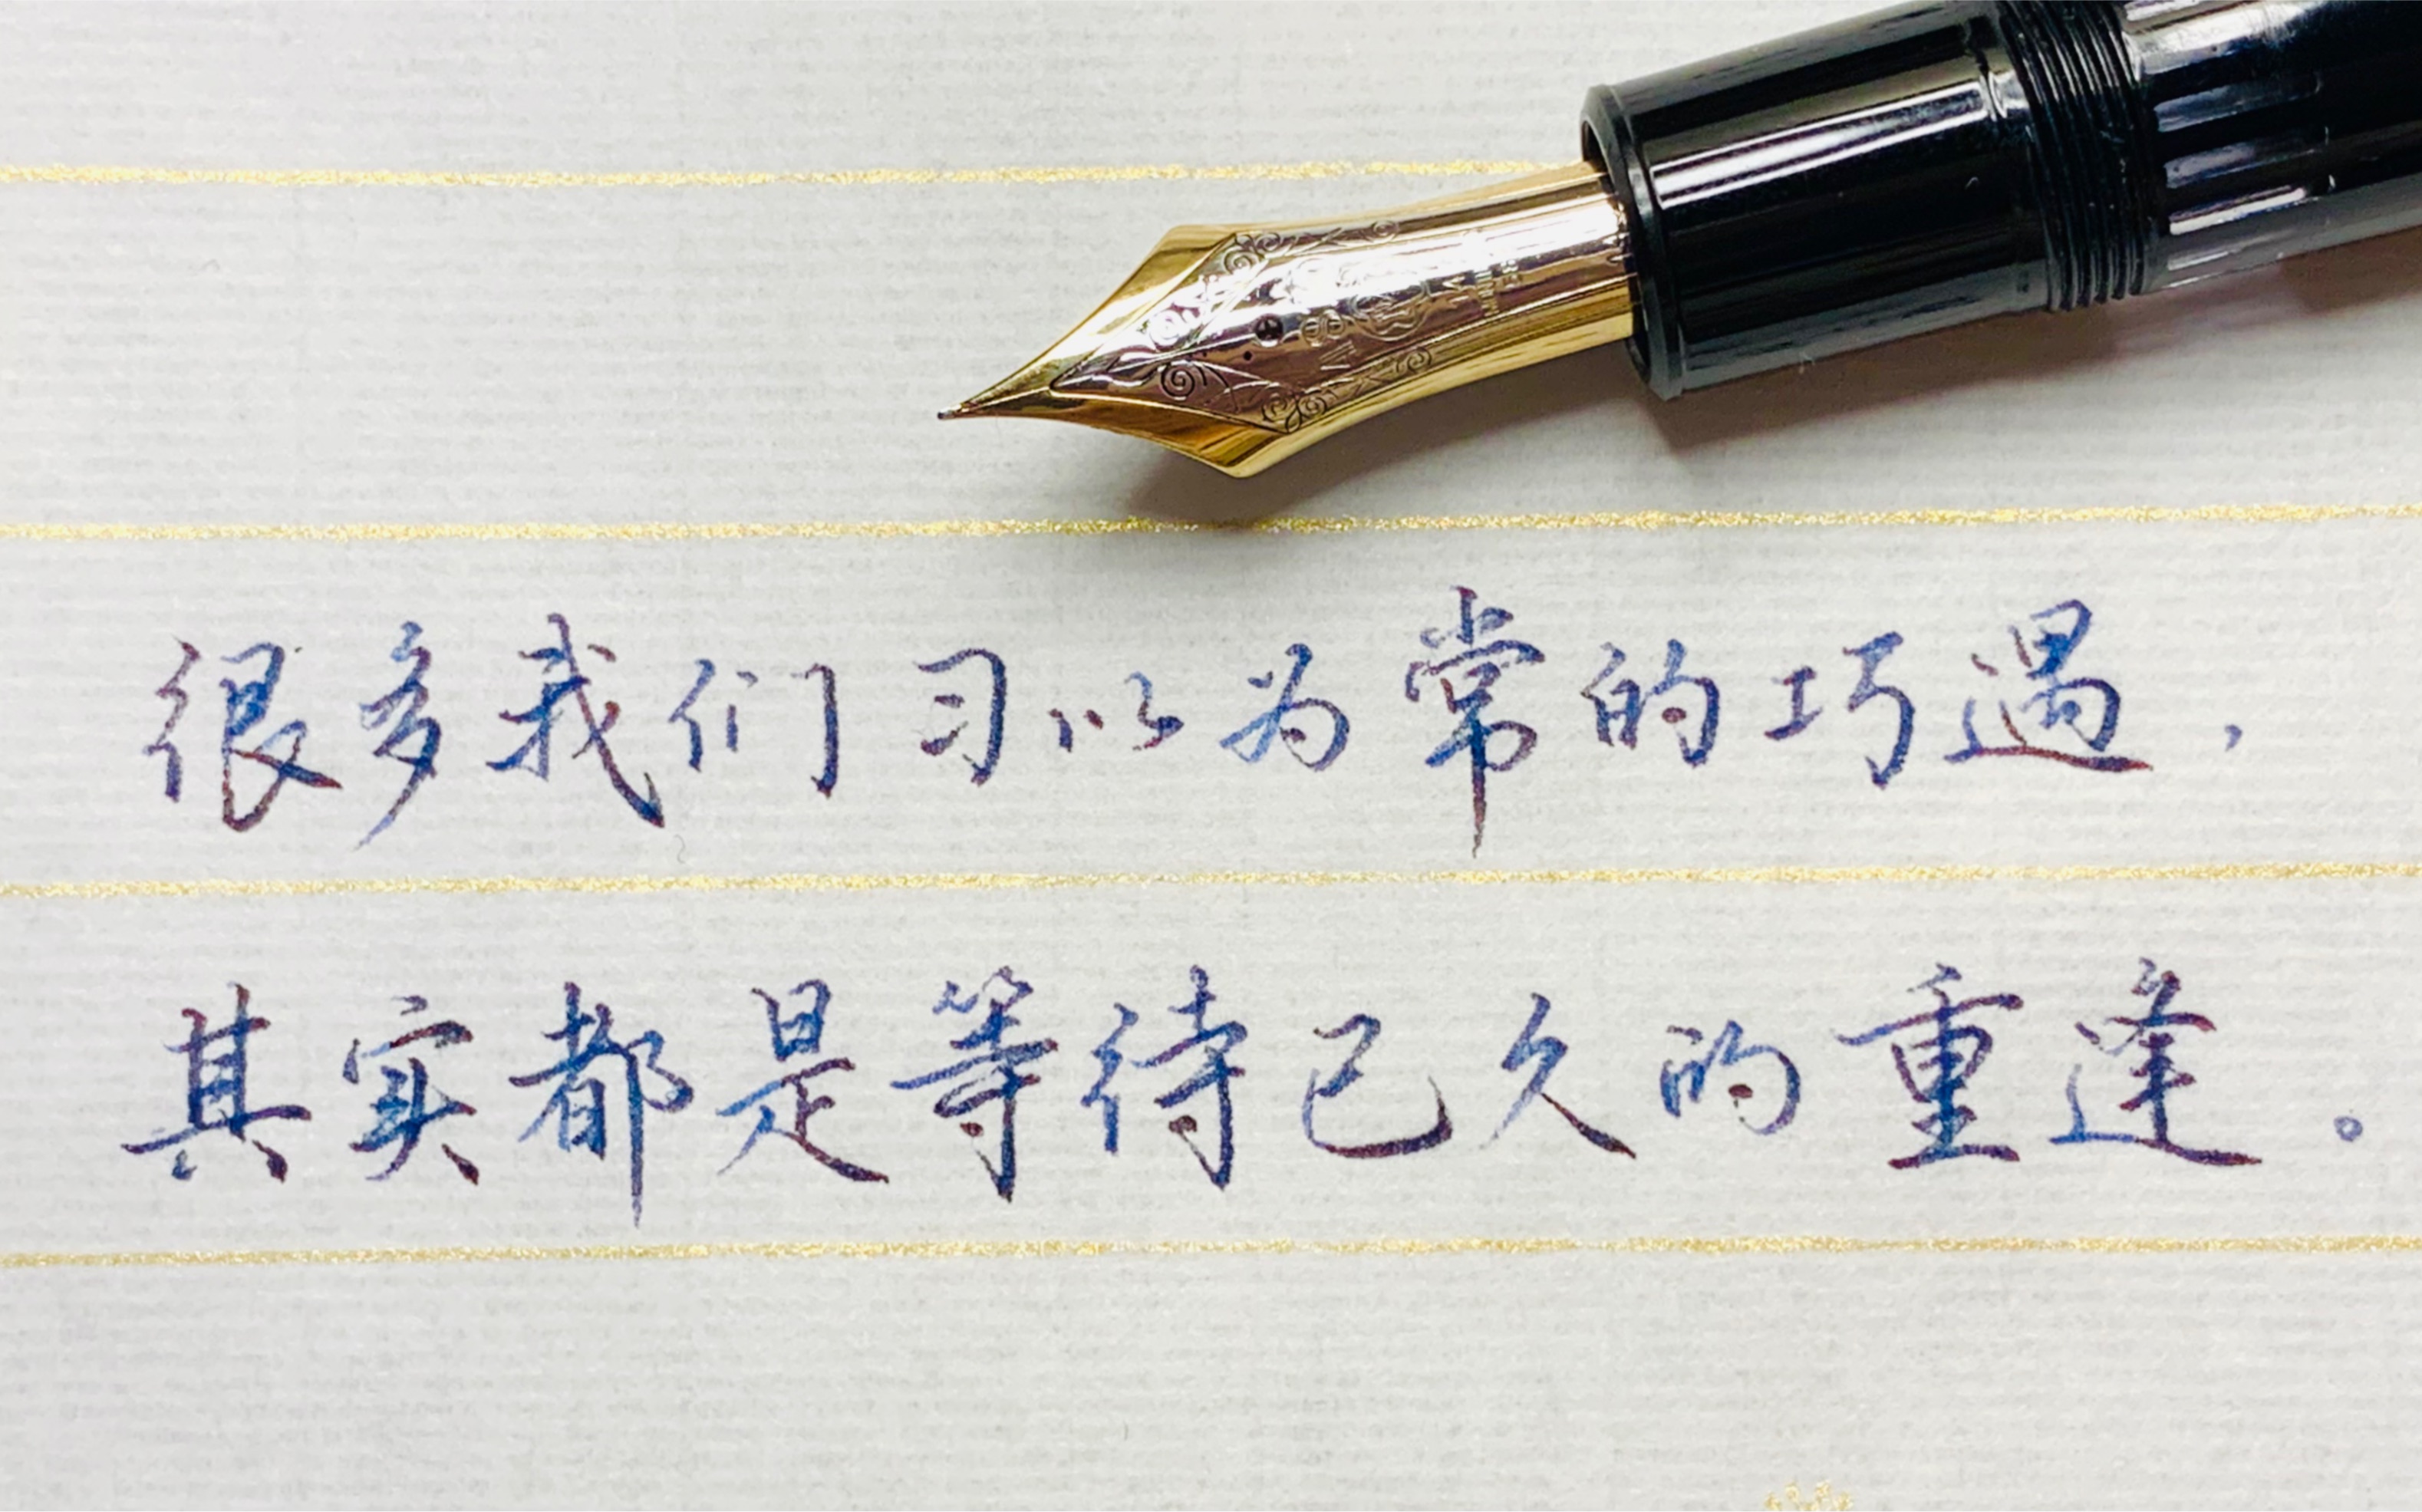 很多我们习以为常的巧遇，
其实都是等待已久的重逢。